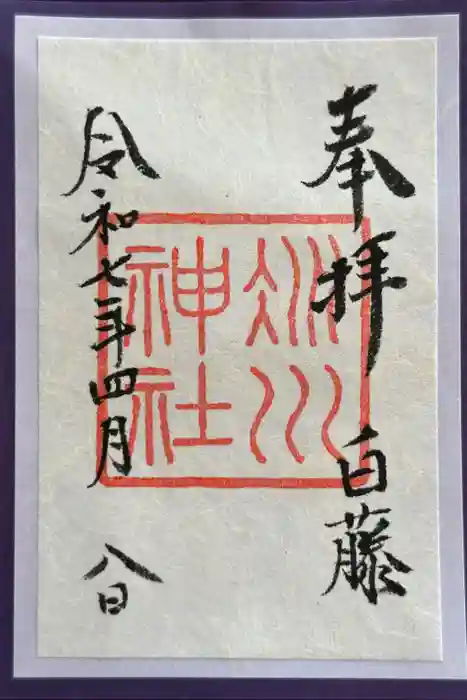 奉拝 白藤
冰川
神社
令和七年四月八日